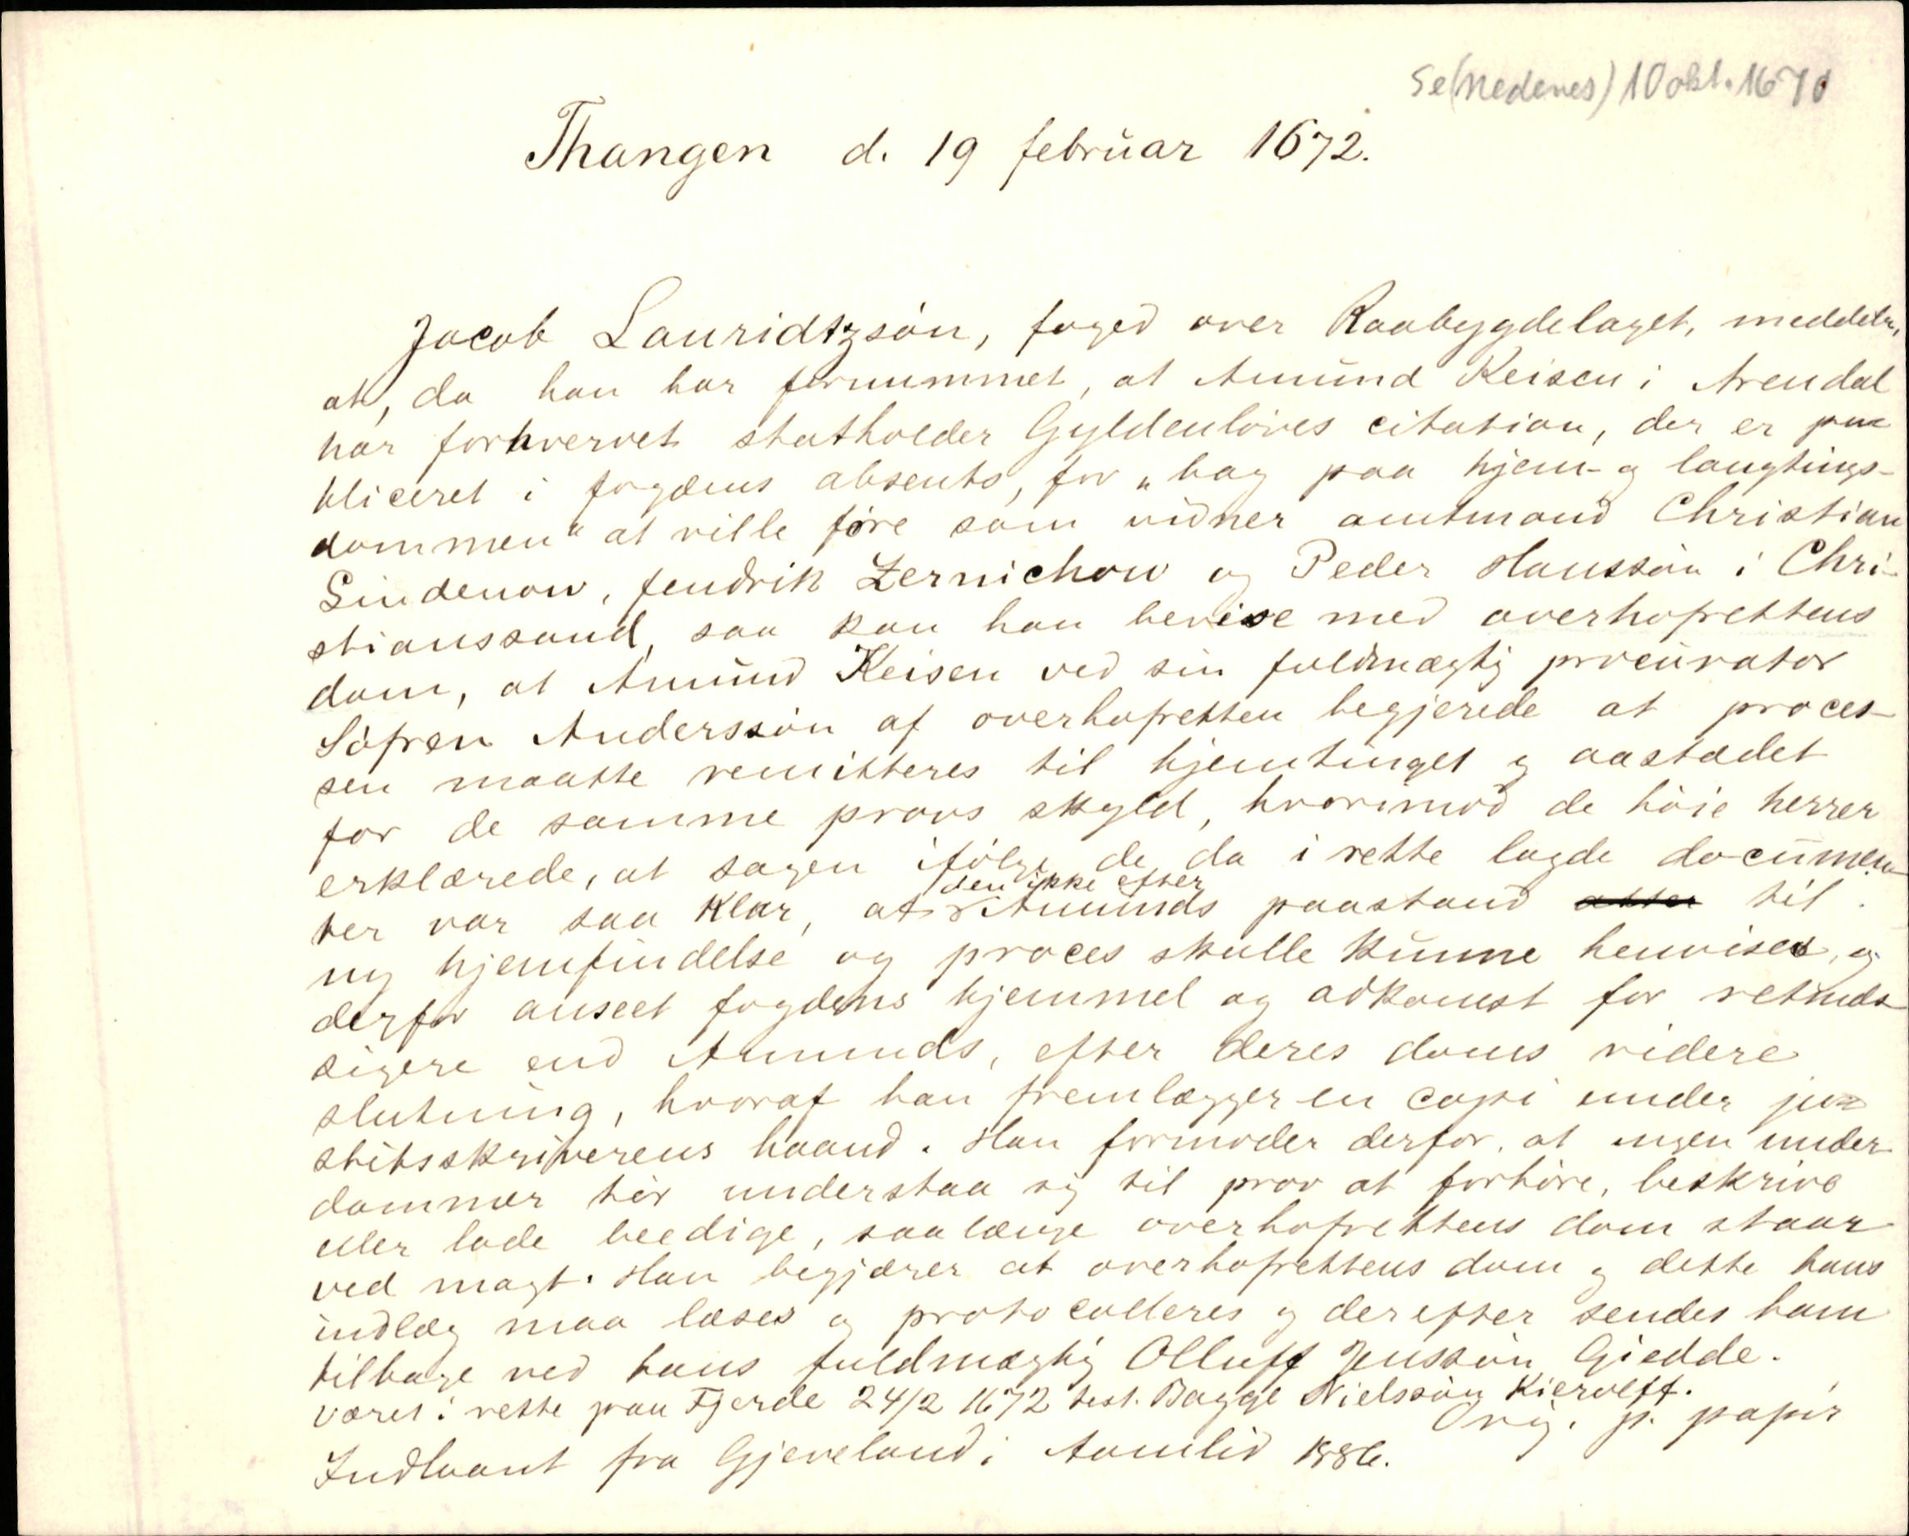 Se (Nedenes) 10 okt. 1670
Thangen d. 19 februar 1672.
Jacob Lauridtzsön, foged over Raabygdelaget, meddeler,
at, da han har fornummet, at Amund Keisen i Arendal
har forhvervet statholder Gyldenlöves citation, der er pu-
bliceret i fogdens absents, for "bag paa hjem- og laugtings-
dommen" at ville före som vidner amtmand Christian
Lindenow, fendrik Zernichow og Peder Hanssön i Chri-
stianssand, saa kan han bevise med overhofrettens
dom, at Amund Keisen ved sin fuldmægtig procurator
Söfren Anderssön af overhofretten begjerede at proces-
sen maatte remitteres til hjemtinget og aastædet
for de samme provs skyld, hvorimod de höie herrer
erklærede, at sagen ifölge de da i rette lagde documen-
ter var saa klar, at den ikke efter Amunds paastand til
ny hjemfindelse og proces skulle kunne henvises, og
derfor anseet fogdens hjemmel og adkomst for retmds-
sigere end Amunds, efter deres doms videre
slutning, hvoraf han fremlægger en copi under ju-
stitsskriverens haand. Han formoder derfor, at ingen under-
dommer tör understaa sig til prov at forhöre, beskrive
eller lade beedige, saalænge overhofrettens dom staar
ved magt. Han begjærer at overhofrettens dom og dette hans
indlæg maa læses og protocolleres og derefter sendes ham
tilbage ved hans fuldmægtig Olluff Jenssön Giedde.
Været i rette paa Fjerde 24/2 1672 test. Bagge Nielssön Kierulff.
Orig. p. papir
Indlaant fra Gjeveland i Aamlid 1886.